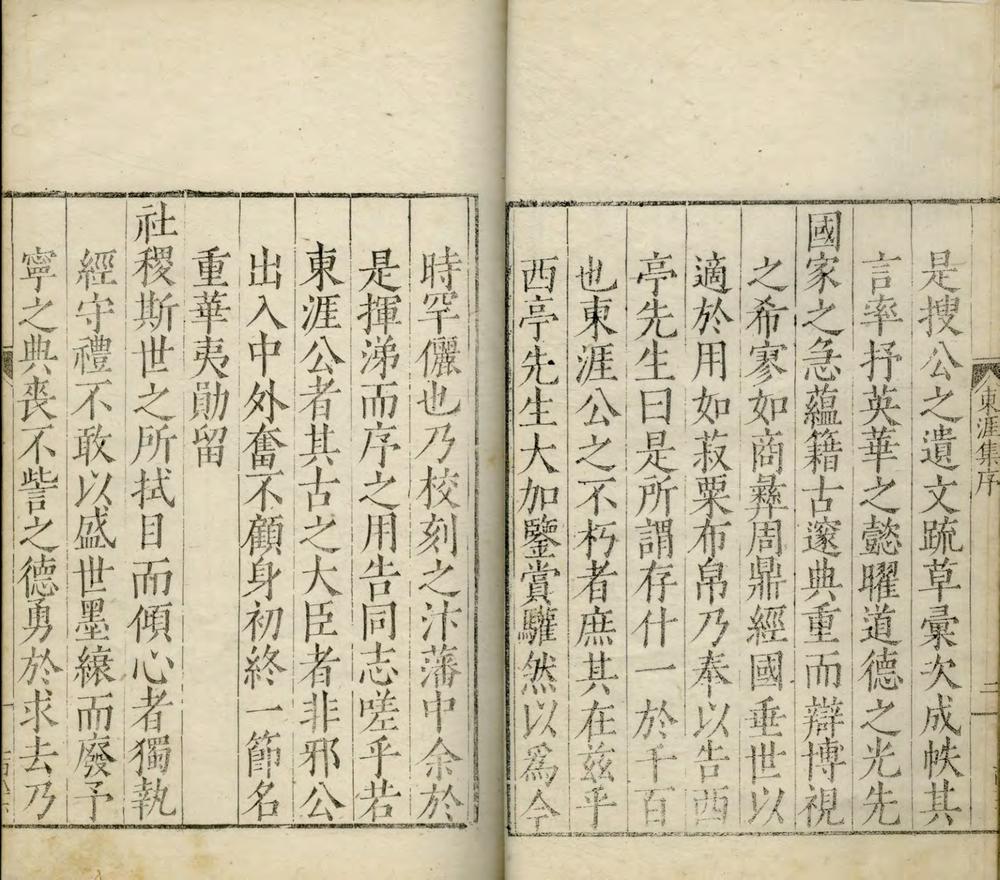 東涯集序
二
是搜公之遺文疏草彙次成帙其
言率抒英華之懿曜道德之光先
國家之急蘊籍古邃典重而辯博視
之希寥如商彝周鼎經國垂世以
適於用如菽粟布帛乃奉以告西
亭先生曰是所謂存什一於千百
也東涯公之不朽者庶其在茲乎
西亭先生大加鑒賞驩然以為今
時罕儷也乃校刻之汴藩中余於
是揮涕而序之用告同志嗟乎若
東涯公者其古之大臣者非邪公
出入中外奮不顧身初終一節名
重華夷勛留
社稷斯世之所拭目而傾心者獨執
經守禮不敢以盛世墨縗而廢予
寧之典喪不訾之德勇於求去乃